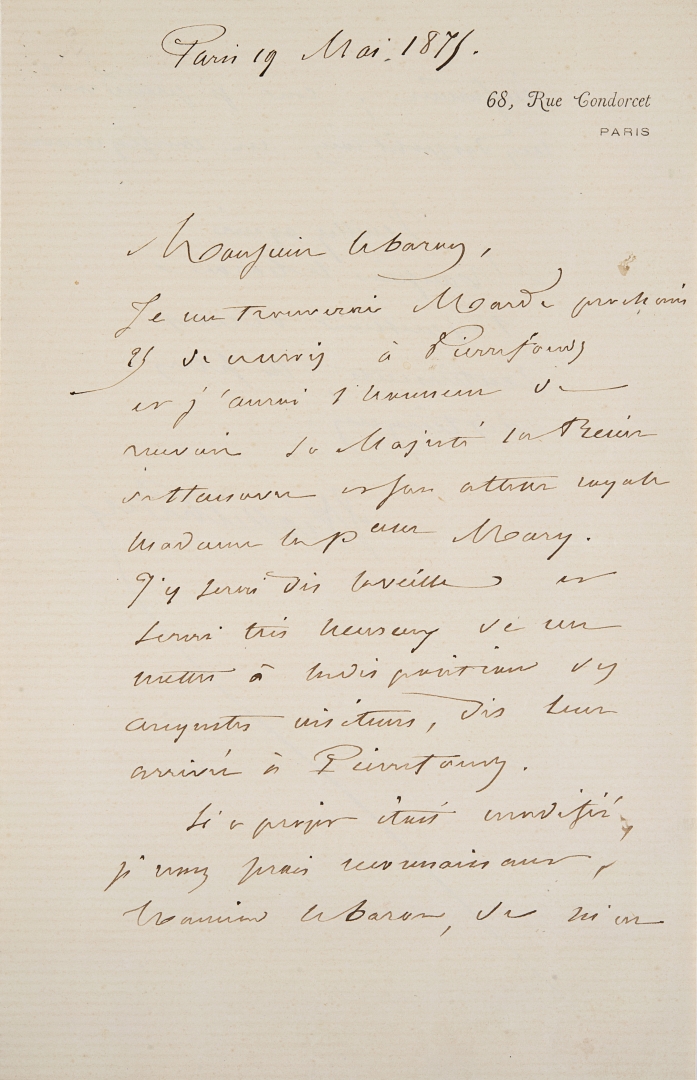 Paris 19 Mai. 1875.
68, Rue Condorcet
PARIS
Monsieur le baron,
Je me trouverai Mardi prochain
25 de ce mois à Pierrefonds
et j'aurai l'honneur de
recevoir Sa Majesté la Reine
de Hanovre et son altesse royale
Madame la pcesse Mary.
J'y serai dès la veille et
serai très heureux de me
mettre à la disposition des
augustes visiteurs, dès leur
arrivée à Pierrefonds.
Si ce projet était modifié,
je vous serais reconnaissant,
Monsieur le baron, de m'en